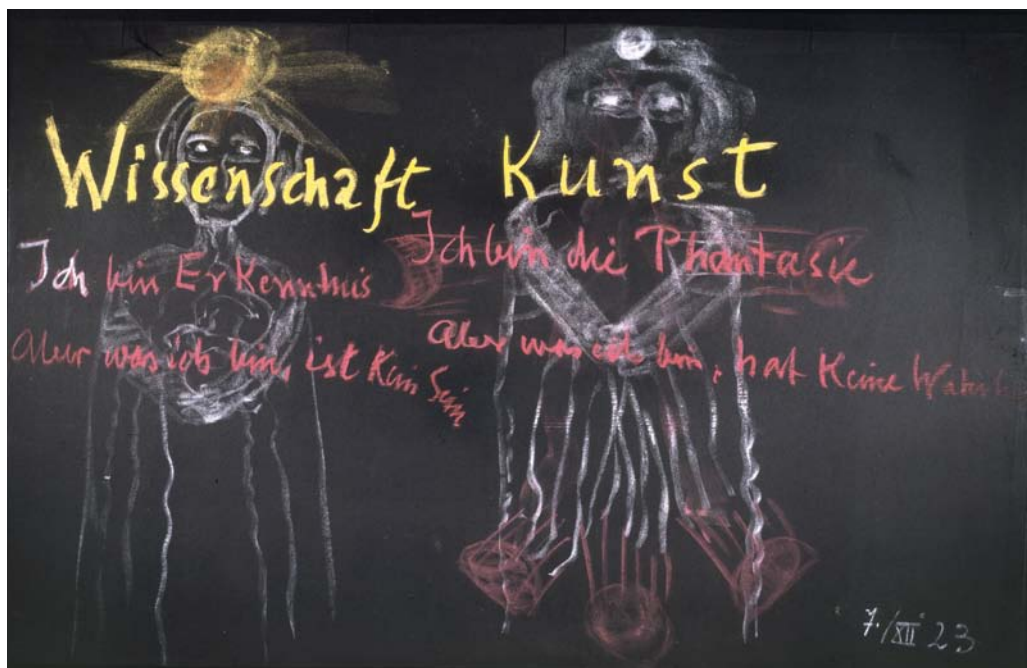 Wissenschaft Kunst
Ich bin Erkenntnis
Aber was ich bin, ist kein Sein
Ich bin die Phantasie
Aber was ich bin, hat keine
7./XII 23